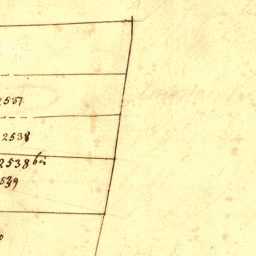 2537
2538
2538 bis
2539